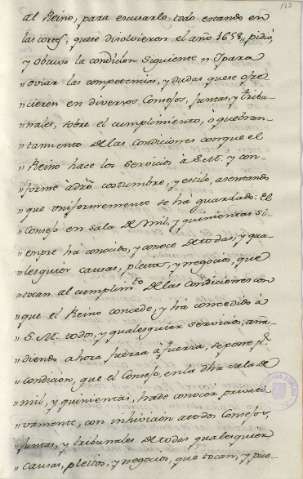 al Reino, para escusarlo todo estando en
las cortes, que se disolvieron el año 1658, pidió,
y obtuvo la condicion siguiente = Y para
" obviar las competencias, y dudas que se ofre
" cieren en diversos Consejos, Juntas, y tribu
" nales, sobre el cumplimiento, o quebran-
" tamiento de las condiciones con que el
" Reino hace los servicios à S.M. y con-
" forme à dro. costumbre, y estilo, asentando
" que uniformemente se ha guardado: El
" Consejo en sala de Mil, y quinientas si
" empre ha conocido, y conoce de todas, y qua
" lesquier causas, pleitos, y negocios, que
" tocan al cumplimto. de las condiciones con
" que el Reino concede, y ha concedido à
" S.M. todos, y qualesquier servicios, aña
" diendo ahora fuerza à fuerza, se pone pr.
" condicion, que el Consejo, en la dha sala de
" mil, y quinientas, hade conocer privati
" vamente, con inhivicion à todos Consejos,
" Juntas, y tribunales de todas qualesquier
" causas, pleitos, y negocios, que tocan, y pue-